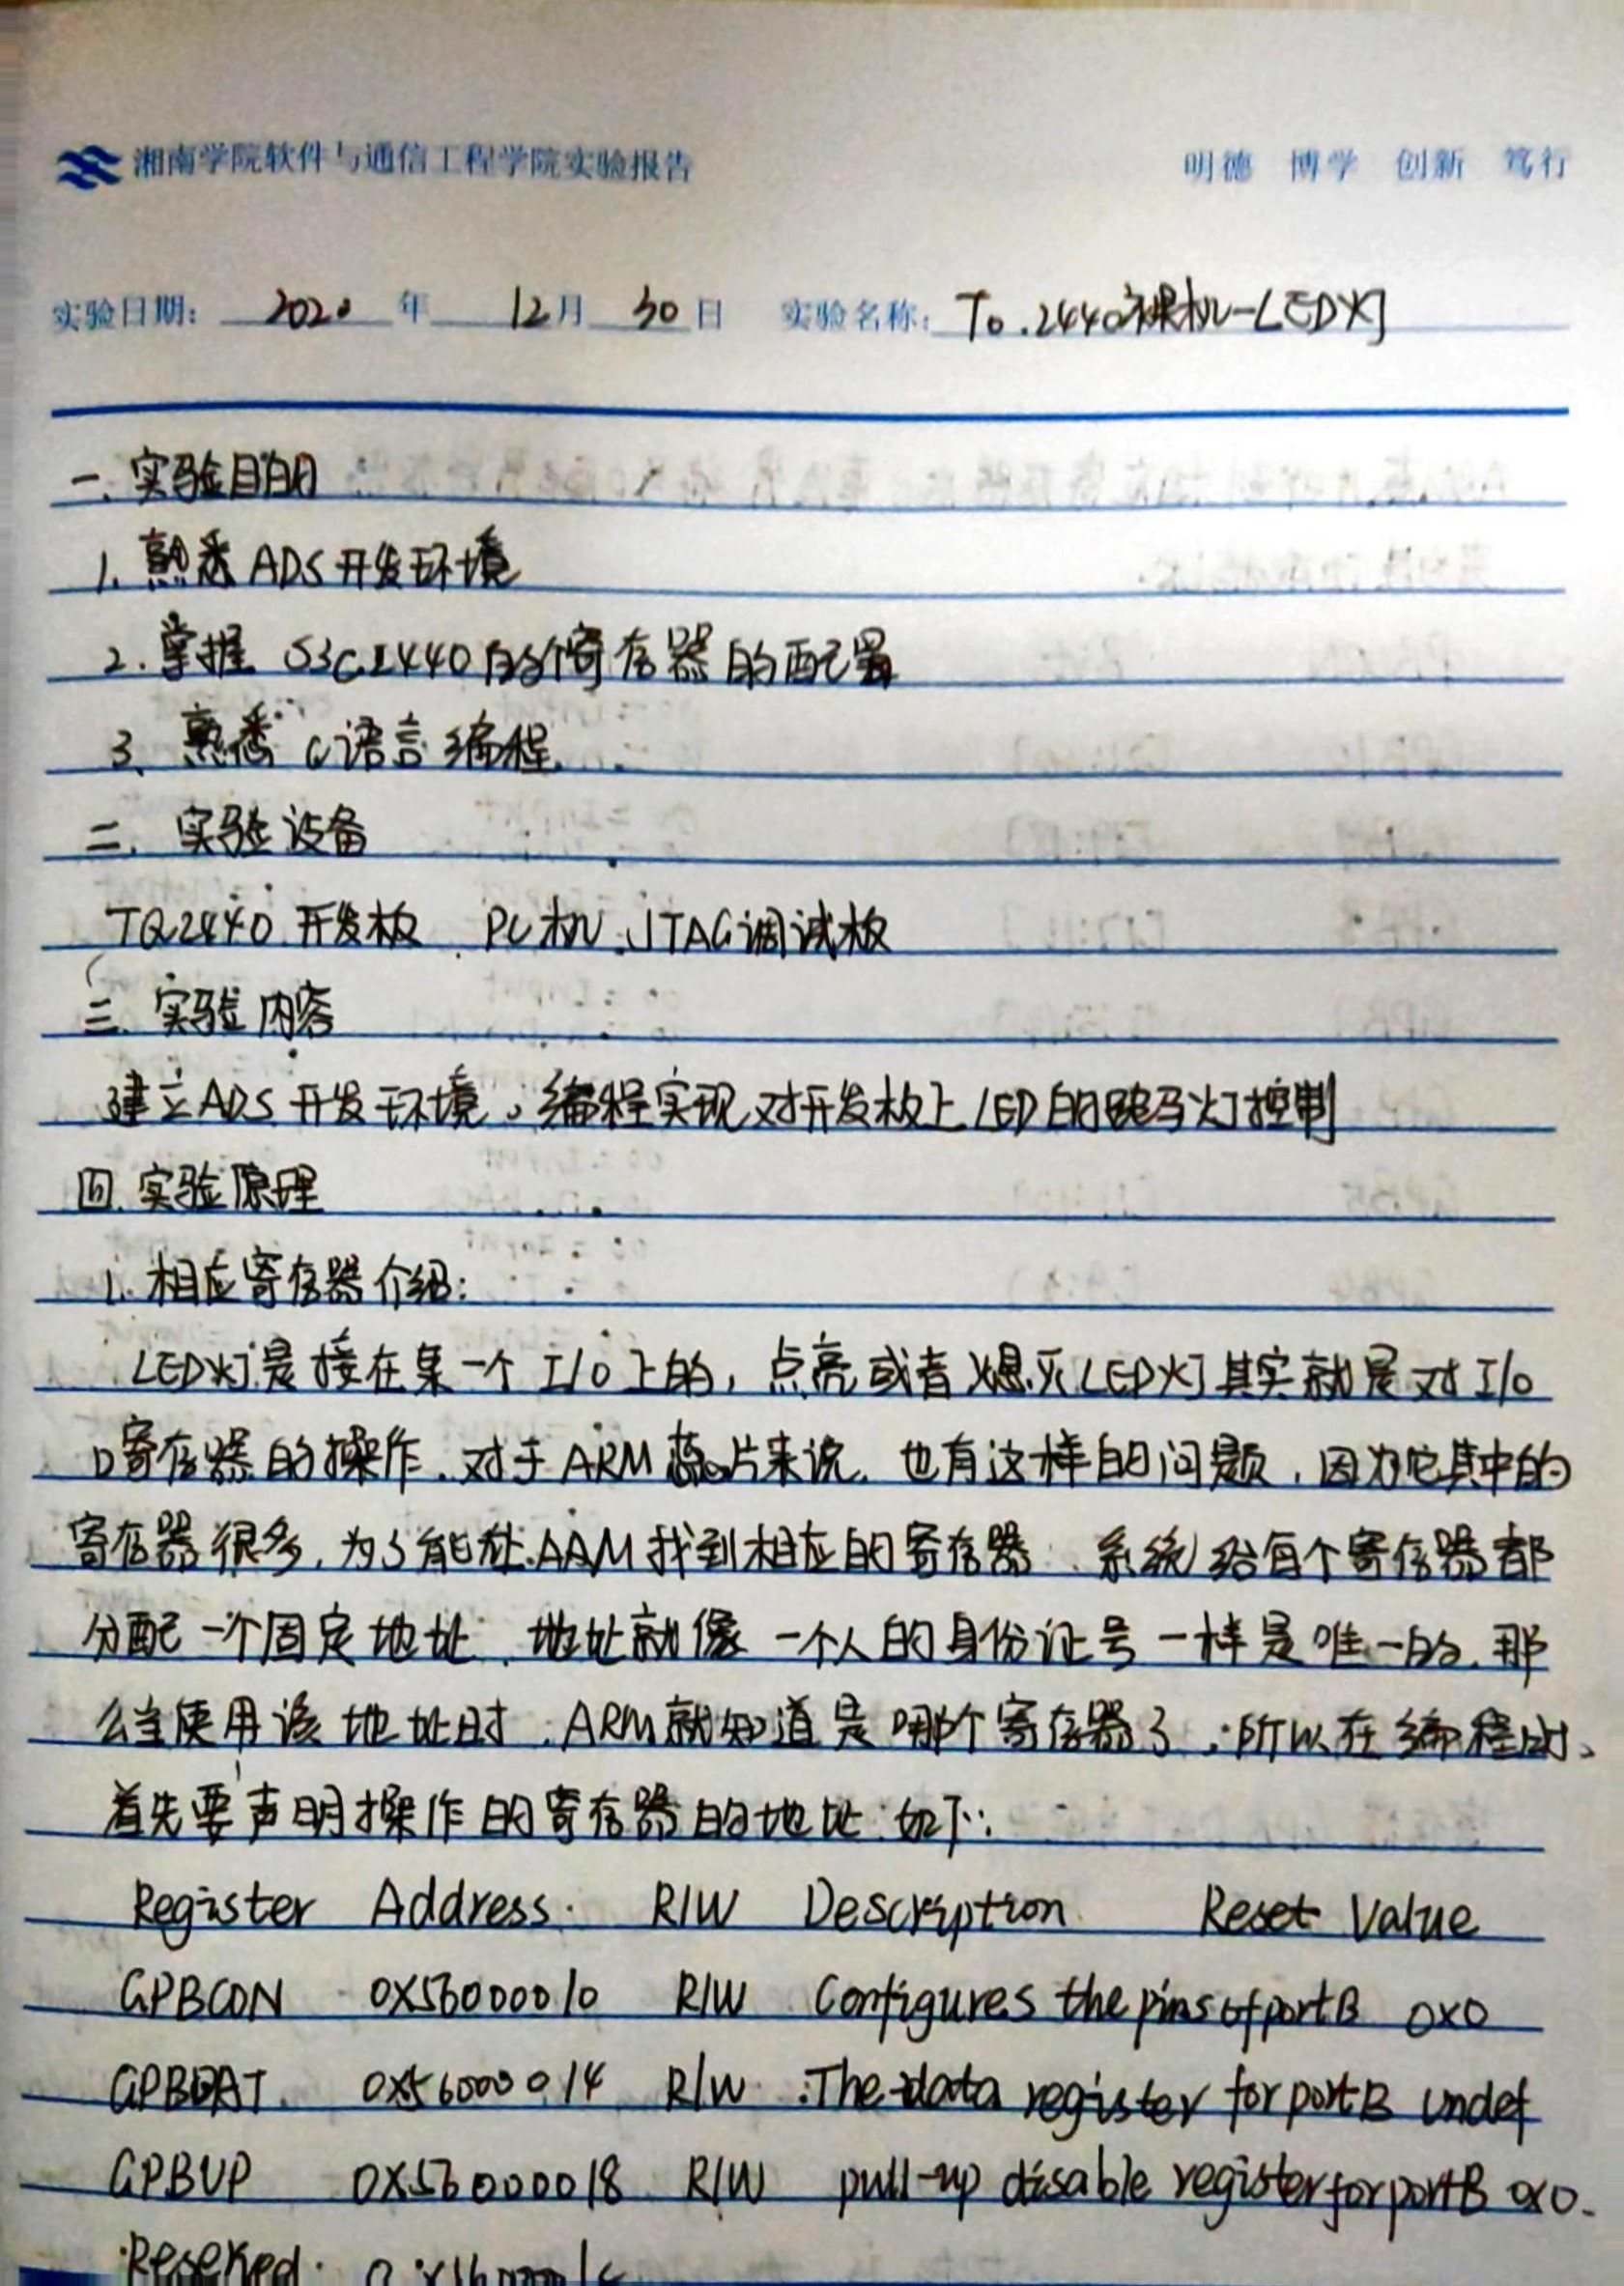 湘南学院软件与通信工程学院实验报告 明德 博学 创新 笃行
实验日期: 2020 年 12月 30日 实验名称: To.2440裸机-LED灯
一. 实验目的
1. 熟悉ADS开发环境
2. 掌握 S3C2440的各个寄存器的配置
3. 熟悉 C语言编程.
二. 实验设备
TQ2440 开发板. PC机. JTAG调试板
三. 实验内容
建立ADS开发环境, 编程实现对开发板上LED的跑马灯控制
四. 实验原理
1. 相应寄存器介绍:
LED灯是接在某一个 I/O上的, 点亮或者熄灭LED灯其实就是对I/O
口寄存器的操作. 对于ARM芯片来说. 也有这样的问题, 因为它其中的
寄存器很多, 为了能让ARM找到相应的寄存器. 系统给每个寄存器都
分配一个固定地址. 地址就像一个人的身份证号一样是唯一的. 那
么当使用该地址时. ARM就知道是哪个寄存器了, 所以在编程时、
首先要声明操作的寄存器的地址 如下:
Register Address R/W Description Reset Value
GPBCON 0X56000010 R/W Configures the pins of port B 0x0
GPBDAT 0x56000014 R/W The data register for port B Undef
GPBUP 0X56000018 R/W pull-up disable register for port B 0x0.
Reserved